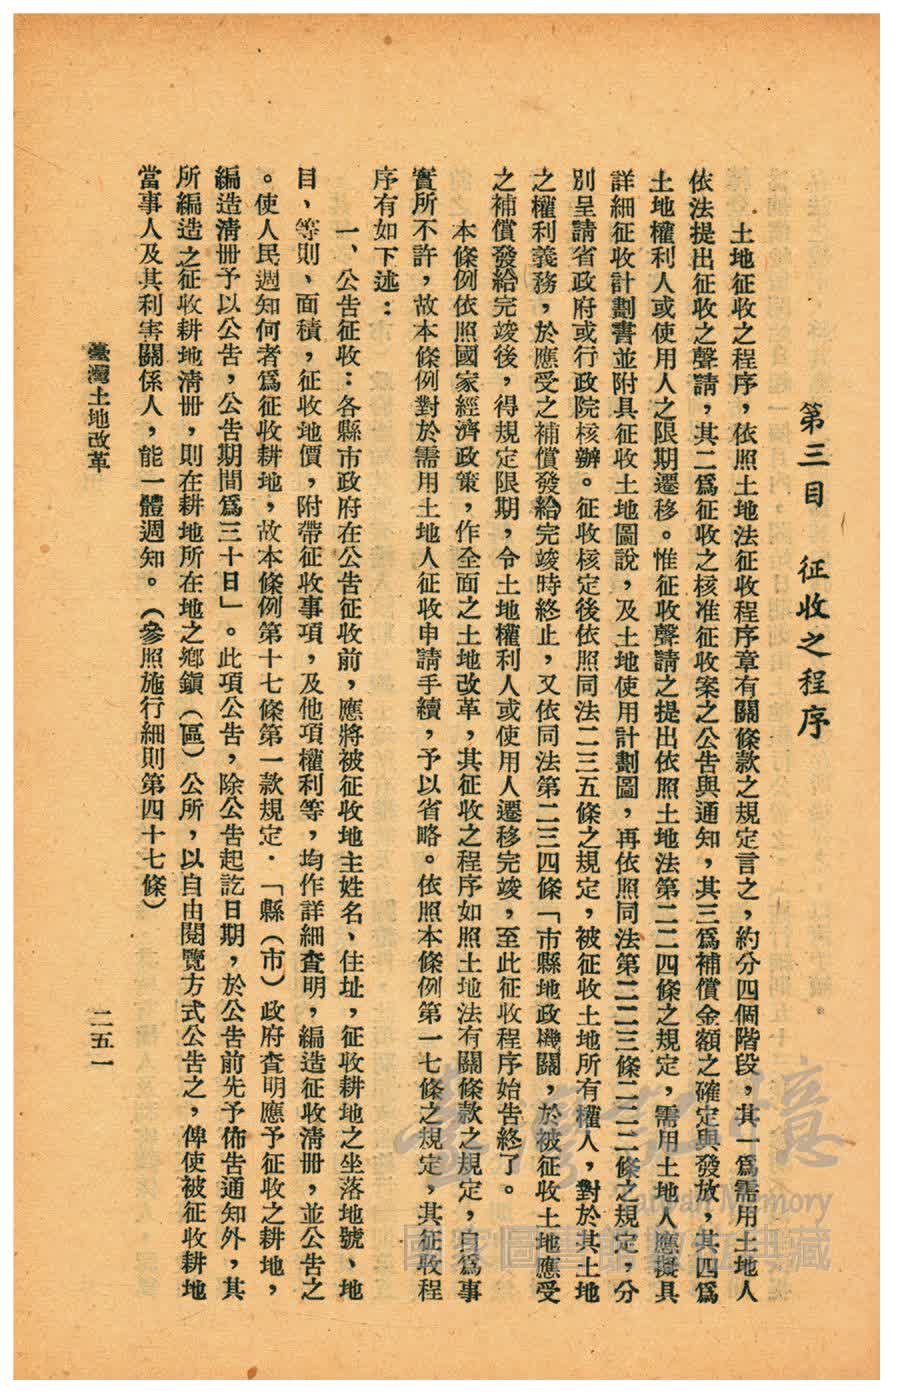 第三目　征收之程序
土地征收之程序，依照土地法征收程序章有關條款之規定言之，約分四個階段，其一爲需用土地人
依法提出征收之聲請，其二爲征收之核准征收案之公告與通知，其三爲補償金額之確定與發放，其四爲
土地權利人或使用人之限期遷移。惟征收聲請之提出依照土地法第二二四條之規定，需用土地人應擬具
詳細征收計劃書並附具征收土地圖說，及土地使用計劃圖，再依照同法第二二三條二二二條之規定，分
別呈請省政府或行政院核辦。征收核定後依照同法二三五條之規定，被征收土地所有權人，對於其土地
之權利義務，於應受之補償發給完竣時終止，又依同法第二三四條「市縣地政機關，於被征收土地應受
之補償發給完竣後，得規定限期，令土地權利人或使用人遷移完竣，至此征收程序始告終了。
本條例依照國家經濟政策，作全面之土地改革，其征收之程序如照土地法有關條款之規定，自爲事
實所不許，故本條例對於需用土地人征收申請手續，予以省略。依照本條例第一七條之規定，其征收程
序有如下述：
一、公告征收：各縣市政府在公告征收前，應將被征收地主姓名、住址，征收耕地之坐落地號、地
目、等則、面積，征收地價，附帶征收事項，及他項權利等，均作詳細查明，編造征收清册，並公告之
。使人民週知何者爲征收耕地，故本條例第十七條第一款規定．「縣（市）政府查明應予征收之耕地，
編造清册予以公告，公告期間爲三十日」。此項公告，除公告起訖日期，於公告前先予佈告通知外，其
所編造之征收耕地清册，則在耕地所在地之鄉鎮（區）公所，以自由閱覽方式公告之，俾使被征收耕地
當事人及其利害關係人，能一體週知。（參照施行細則第四十七條）
臺灣土地改革
二五一
臺灣記憶
Taiwan Memory
國家圖書館數位典藏